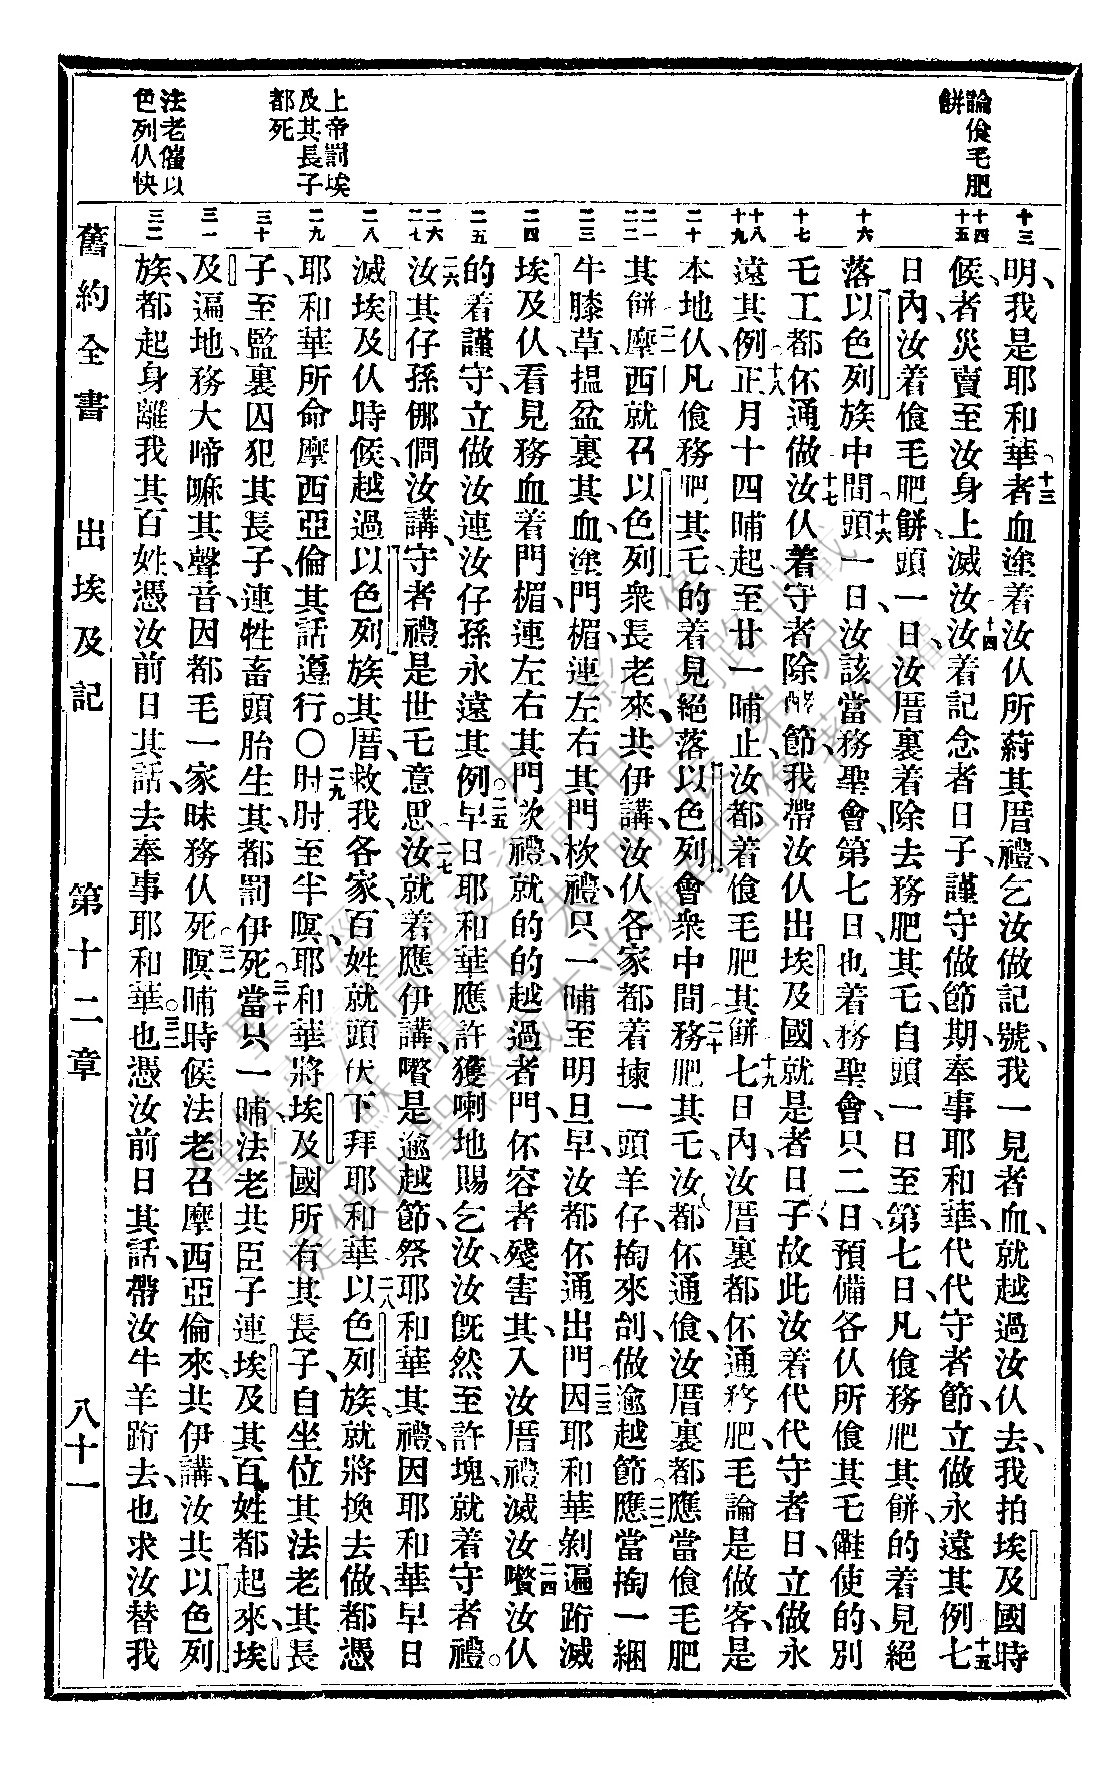 論飧毛肥
餅
上帝罰埃
及其長子
都死
法老催以
色列仈快
十三
十四
十五
十六
十七
十八
十九
二十
二一
二二
二三
二四
二五
二六
二七
二八
二九
三十
三一
三二
明、我是耶和華、十三者血塗着汝仈所蒔其厝禮、乞汝做記號、我一見者血、就越過汝仈去、我拍埃及國時
候、者災賣至汝身上滅汝、十四汝着記念者日子、謹守做節期、奉事耶和華、代代守者節、立做永遠其例、十五七
日內、汝着飧毛肥餅、頭一日、汝厝裏着除去務肥其乇、自頭一日至第七日、凡飧務肥其餅、的着見絕
落以色列族中間、十六頭一日、汝該當務聖會、第七日也着務聖會、只二日、預備各仈所飧其乇、儺使的、別
乇工都伓通做、十七汝仈着守者除酵節、我帶汝仈出埃及國、就是者日子、故此汝着代代守者日、立做永
遠其例、十八正月十四晡起、至廿一晡止、汝都着飧毛肥其餅、十九七日內、汝厝裏都伓通務肥、毛論是做客、是
本地仈、凡飧務肥其乇、的着見絕落以色列會衆中間、二十務肥其乇、汝都伓通飧、汝厝裏都應當飧毛肥
其餅、二一摩西就召以色列衆長老來、共伊講、汝仈各家都着揀一頭羊仔、掏來刣、做逾越節、二二應當掏一綑
牛膝草、搵盆裏其血、塗門楣連左右其門杴禮、只一晡至明旦早、汝都伓通出門、二三因耶和華剿遍跡滅
埃及仈、看見務血着門楣、連左右其門杴禮、就的的越過者門、伓容者殘害其、入汝厝禮滅汝、二四喒汝仈
的着謹守、立做汝連汝仔孫永遠其例、二五早日耶和華應許獲喇地賜乞汝、汝旣然至許塊、就着守者禮。
二六汝其仔孫㑚僩汝講、守者禮是世乇意思、二七汝就着應伊講、喒是逾越節祭耶和華其禮、因耶和華早日
滅埃及仈時候、越過以色列族其厝、救我各家、百姓就頭伏下拜耶和華、二八以色列族、就將換去做、都憑
耶和華所命摩西亞倫其話遵行。〇二九肘肘至半暝、耶和華將埃及國所有其長子、自坐位其法老其長
子、至監裏囚犯其長子、連牲畜頭胎生其、都罰伊死、三十當只一晡、法老共臣子、連埃及其百姓都起來、埃
及遍地、務大啼嘛其聲音、因都毛一家昧務仈死、三一暝晡時候、法老召摩西亞倫來、共伊講、汝共以色列
族、都起身離我其百姓、憑汝前日其話、去奉事耶和華、三二也憑汝前日其話、帶汝牛羊跡去、也求汝替我
舊約全書　出埃及記　第十二章　八十一